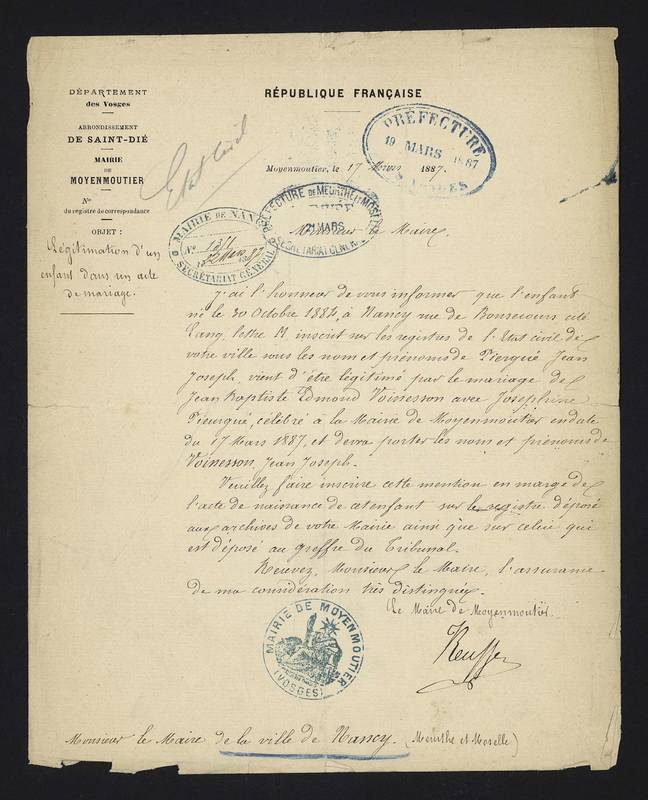 DÉPARTEMENT
des Vosges
ARRONDISSEMENT
DE SAINT-DIÉ
MAIRIE
DE
MOYENMOUTIER
No
du registre de correspondance
OBJET :
Légitimation d'un
enfant dans un acte
de mariage.
Etat Civil
RÉPUBLIQUE FRANÇAISE
PRÉFECTURE
19 MARS 1887
VOSGES
Moyenmoutier, le 17 Mars 1887.
MAIRIE DE NANCY
No 1311
22 Mars 1887
SECRÉTARIAT GÉNÉRAL
PRÉFECTURE DE MEURTHE ET MOSELLE
21 MARS
SECRÉTARIAT GÉNÉRAL
Monsieur le Maire,
J'ai l'honneur de vous informer que l'enfant
né le 30 Octobre 1882, à Nancy rue de Bonsecours cité
Lang, lettre M, inscrit sur les registres de l'Etat civil de
votre ville sous les nom et prénoms de Pierqué Jean
Joseph, vient d'être légitimé par le mariage de
Jean Baptiste Edmond Voinesson avec Joséphine
Pierqué, célébré à la Mairie de Moyenmoutier en date
du 17 Mars 1887, et devra porter les nom et prénoms de
Voinesson, Jean Joseph.
Veuillez faire inscrire cette mention en marge de
l'acte de naissance de cet enfant sur le registre déposé
aux archives de votre Mairie ainsi que sur celui qui
est déposé au greffe du Tribunal.
Recevez, Monsieur le Maire, l'assurance
de ma considération très distinguée.
Le Maire de Moyenmoutier.
MAIRIE DE MOYENMOUTIER
(VOSGES)
Monsieur le Maire de la ville de Nancy. (Meurthe et Moselle)